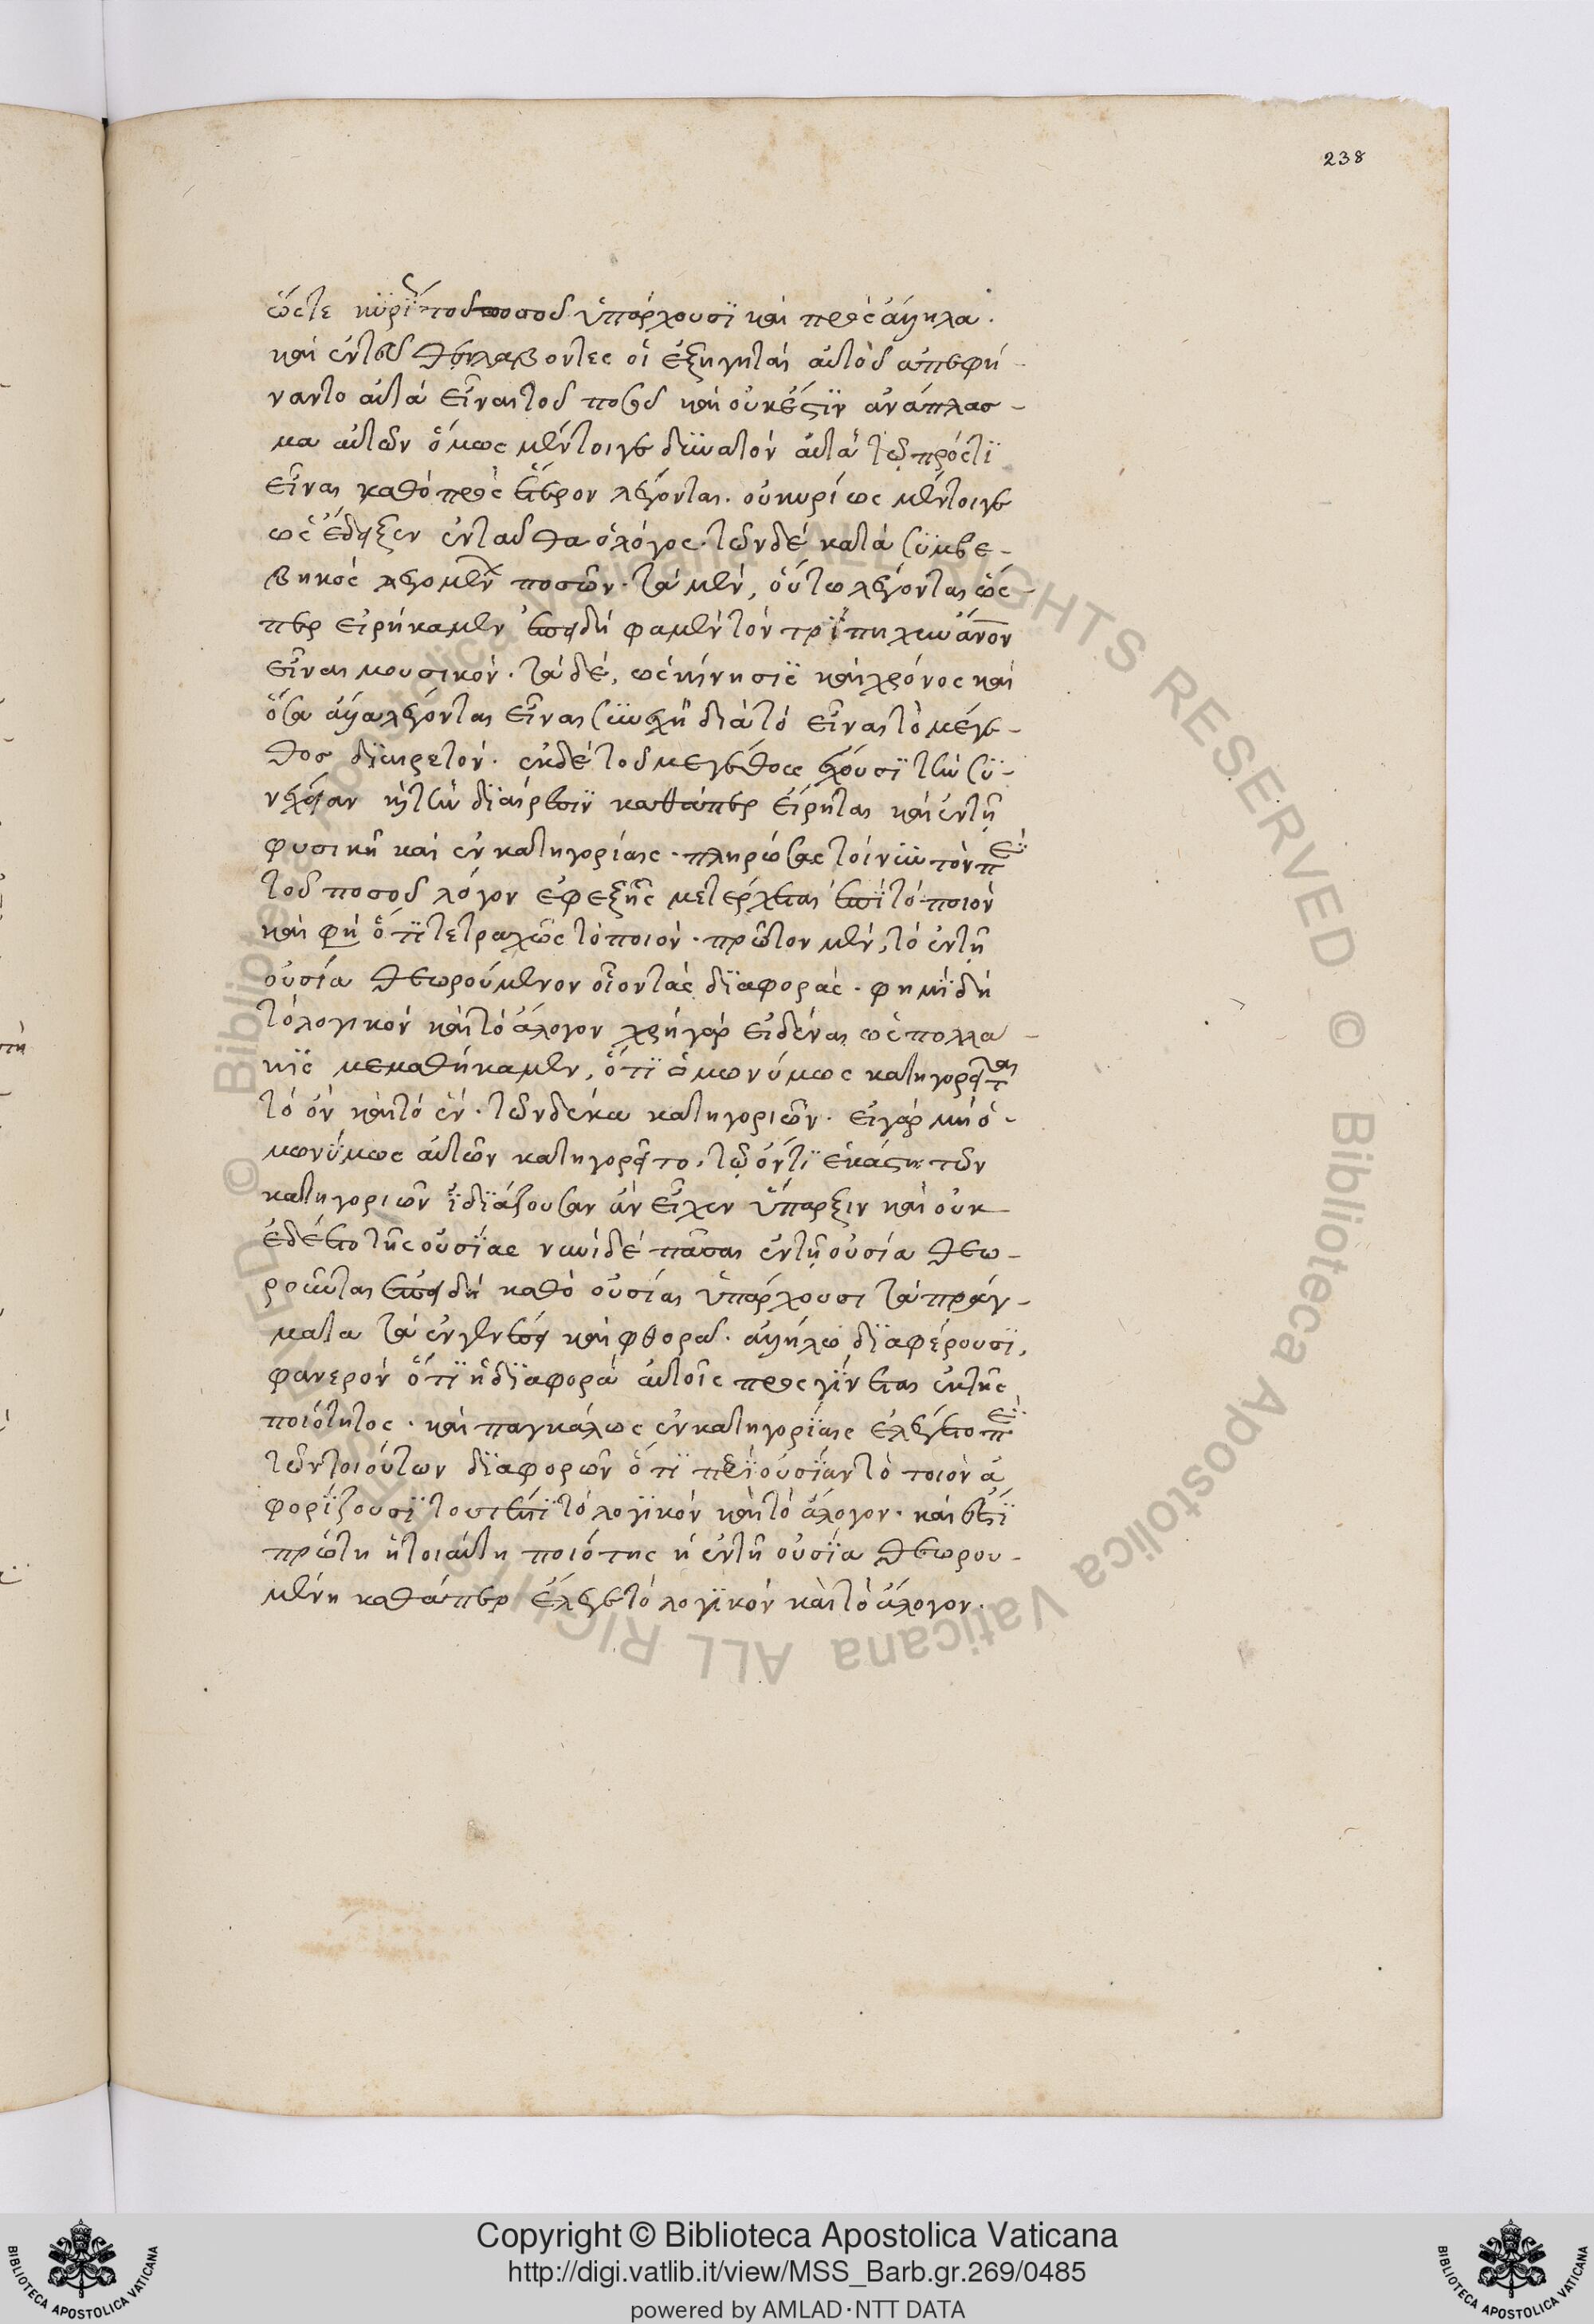 238
ὥστε κυρίως τοῦ ποσοῦ ὑπάρχουσι καὶ πρὸς ἄλληλα.
καὶ ἐντεῦθεν λαβόντες οἱ ἐξηγηταὶ αὐτοῦ ἀπεφή-
ναντο αὐτὰ εἶναι τοῦ ποσοῦ καὶ οὐκ ἔστιν ἀνάπλασ-
μα αὐτῶν ὅμως μέντοιγε δυνατὸν αὐτὰ τῷ πρός τι
εἶναι καθὸ πρὸς ἕτερον λέγονται. οὐ κυρίως μέντοιγε
ὡς ἔδειξεν ἐνταῦθα ὁ λόγος. τῶν δὲ κατὰ συμβε-
βηκὸς λεγομένων ποσῶν. τὰ μὲν, οὕτω λέγονται ὥσ-
περ εἰρήκαμεν ἐπειδὴ φαμὲν τὸν τρίπηχυν ἄνον
εἶναι μουσικόν. τὰ δὲ, ὡς κίνησις καὶ χρόνος καὶ
ὅσα ἄλλα λέγονται εἶναι συνεχῆ διὰ τὸ εἶναι τὸ μέγε-
θος διαιρετόν. ἐκ δὲ τοῦ μεγέθους ἔχουσι τὴν συ-
νέχειαν καὶ τὴν διαίρεσιν καθάπερ εἴρηται καὶ ἐν τῇ
φυσικῇ καὶ ἐν κατηγορίαις. πληρώσας τοίνυν τὸν περὶ
τοῦ ποσοῦ λόγον ἐφεξῆς μετέρχεται ἐπὶ τὸ ποιόν
καὶ φη ὅτι τετραχῶς τὸ ποιόν. πρῶτον μὲν, τὸ ἐν τῇ
οὐσία θεωρούμενον οἷον τὰς διαφοράς. φημὶ δὴ
τὸ λογικὸν καὶ τὸ ἄλογον χρὴ γὰρ εἰδέναι ὡς πολλα-
κις μεμαθήκαμεν, ὅτι ὁμωνύμως κατηγορεῖται
τὸ ὂν καὶ τὸ ἓν. τῶν δέκα κατηγοριῶν. εἰ γὰρ μὴ ὁ-
μωνύμως αὐτῶν κατηγορεῖτο, τῷ ὄντι ἑκάστη τῶν
κατηγοριῶν ἰδιάζουσαν ἂν εἶχεν ὕπαρξιν καὶ οὐκ
ἐδέετο τῆς οὐσίας νυνὶ δὲ πᾶσαι ἐν τῇ οὐσία θεω-
ροῦνται ἐπειδὴ καθὸ οὐσίαι ὑπάρχουσι τὰ πράγ-
ματα τὰ ἐν γενέσει καὶ φθορᾶ. ἀλλήλων διαφέρουσι,
φανερὸν ὅτι ἡ διαφορὰ αὐτοῖς προςγίνεται ἐκ τῆς
ποιότητος. καὶ παγκάλως ἐν κατηγορίαις ἐλέγετο περὶ
τῶν τοιούτων διαφορῶν ὅτι περὶ οὐσίαν τὸ ποιὸν ἀ
φορίζουσι τουτέστι τὸ λογικὸν καὶ τὸ ἄλογον. καὶ ἔστι
πρώτη ἡ τοιαύτη ποιότης ἡ ἐν τῇ οὐσία θεωρου-
μένη καθάπερ ἔλεγε τὸ λογικὸν καὶ τὸ ἄλογον.
© Biblioteca Apostolica Vaticana ALL RIGHTS RESERVED
Copyright © Biblioteca Apostolica Vaticana
http://digi.vatlib.it/view/MSS_Barb.gr.269/0485
powered by AMLAD·NTT DATA
BIBLIOTECA APOSTOLICA VATICANA
BIBLIOTECA APOSTOLICA VATICANA